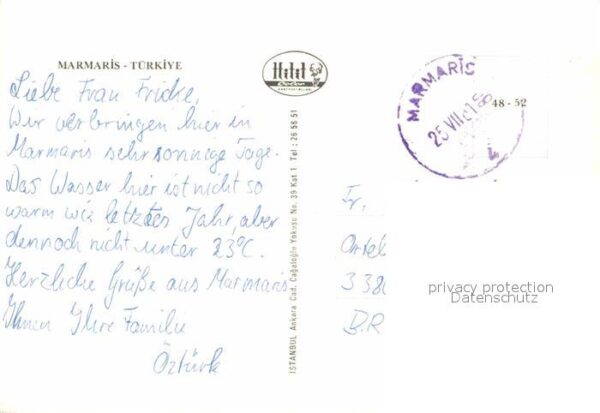 MARMARİS - TÜRKİYE
Hitit
Color
Liebe Frau Fricke,
Wir verbringen hier in
Marmaris sehr sonnige Tage.
Das Wasser hier ist nicht so
warm wie letztes Jahr, aber
dennoch nicht unter 23°C.
Herzliche Grüße aus Marmaris
Ihnen Ihre Familie
Öztürk
İSTANBUL Ankara Cad. Cağaloğlu Yokuşu No. 39 Kat 1 Tel: 26 56 51
MARMARİS
25 VII
4
48 - 52
Fr.
338
B.R
privacy protection
Datenschutz